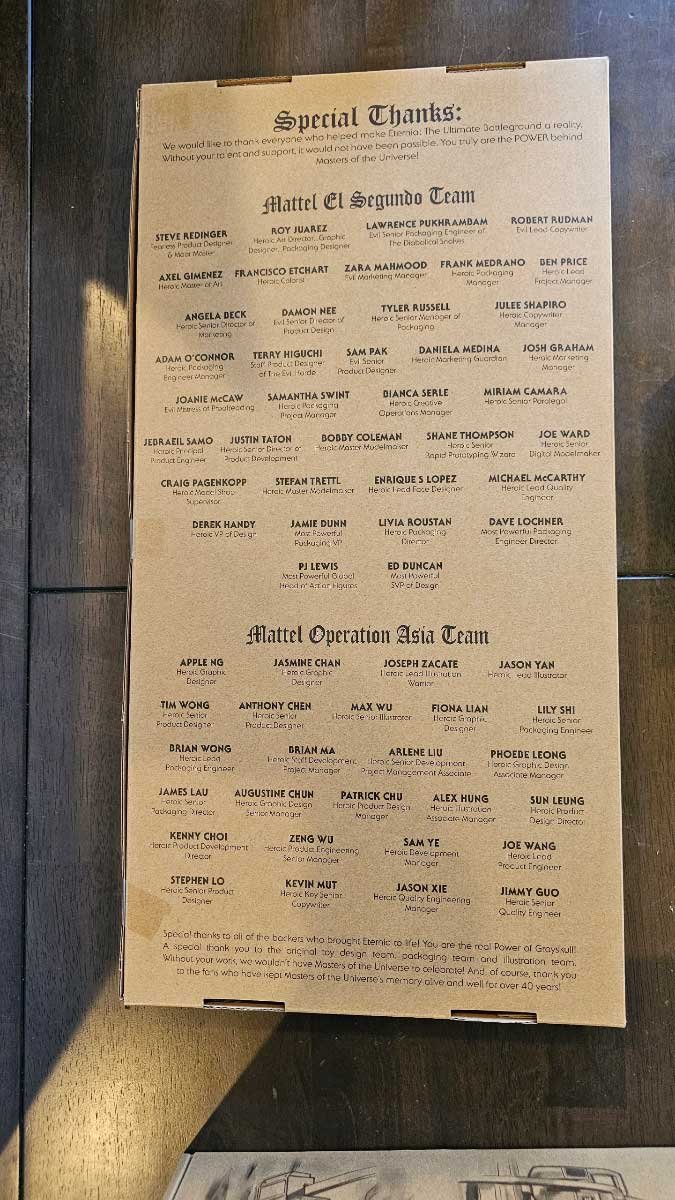 Special Thanks:
We would like to thank everyone who helped make Eternia: The Ultimate Battleground a reality.
Without your talent and support, it would not have been possible. You truly are the POWER behind
Masters of the Universe!
Mattel El Segundo Team
STEVE REDINGER ROY JUAREZ LAWRENCE PUKHRAMBAM ROBERT RUDMAN
Fearless Product Designer Heroic Art Director, Graphic Evil Senior Packaging Engineer of Evil Lead Copywriter
& Moat Master Designer, Packaging Designer The Diabolical Snakes
AXEL GIMENEZ FRANCISCO ETCHART ZARA MAHMOOD FRANK MEDRANO BEN PRICE
Heroic Master of Art Heroic Colorist Evil Marketing Manager Heroic Packaging Heroic Lead
Manager Project Manager
ANGELA BECK DAMON NEE TYLER RUSSELL JULEE SHAPIRO
Heroic Senior Director of Evil Senior Director of Heroic Senior Manager of Heroic Copywriter
Marketing Product Design Packaging Manager
ADAM O'CONNOR TERRY HIGUCHI SAM PAK DANIELA MEDINA JOSH GRAHAM
Heroic Packaging Staff Product Designer Evil Senior Heroic Marketing Guardian Heroic Marketing
Engineer Manager of The Evil Horde Product Designer Manager
JOANIE McCAW SAMANTHA SWINT BIANCA SERLE MIRIAM CAMARA
Evil Mistress of Proofreading Heroic Packaging Heroic Creative Heroic Senior Paralegal
Project Manager Operations Manager
JEBRAEIL SAMO JUSTIN TATON BOBBY COLEMAN SHANE THOMPSON JOE WARD
Heroic Principal Heroic Senior Director of Heroic Master Modelmaker Heroic Senior Heroic Senior
Product Engineer Product Development Rapid Prototyping Wizard Digital Modelmaker
CRAIG PAGENKOPP STEFAN TRETTL ENRIQUE S LOPEZ MICHAEL McCARTHY
Heroic Model Shop Heroic Master Modelmaker Heroic Lead Face Designer Heroic Lead Quality
Supervisor Engineer
DEREK HANDY JAMIE DUNN LIVIA ROUSTAN DAVE LOCHNER
Heroic VP of Design Most Powerful Heroic Packaging Most Powerful Packaging
Packaging VP Director Engineer Director
PJ LEWIS ED DUNCAN
Most Powerful Global Most Powerful
Head of Action Figures SVP of Design
Mattel Operation Asia Team
APPLE NG JASMINE CHAN JOSEPH ZACATE JASON YAN
Heroic Graphic Heroic Graphic Heroic Lead Illustration Heroic Lead Illustrator
Designer Designer Warrior
TIM WONG ANTHONY CHEN MAX WU FIONA LIAN LILY SHI
Heroic Senior Heroic Senior Heroic Senior Illustrator Heroic Graphic Heroic Senior
Product Designer Product Designer Designer Packaging Engineer
BRIAN WONG BRIAN MA ARLENE LIU PHOEBE LEONG
Heroic Lead Heroic Staff Development Heroic Senior Development Heroic Graphic Design
Packaging Engineer Project Manager Project Management Associate Associate Manager
JAMES LAU AUGUSTINE CHUN PATRICK CHU ALEX HUNG SUN LEUNG
Heroic Senior Heroic Graphic Design Heroic Product Design Heroic Illustration Heroic Product
Packaging Director Senior Manager Manager Associate Manager Design Director
KENNY CHOI ZENG WU SAM YE JOE WANG
Heroic Product Development Heroic Product Engineering Heroic Development Heroic Lead
Director Senior Manager Manager Product Engineer
STEPHEN LO KEVIN MUT JASON XIE JIMMY GUO
Heroic Senior Product Heroic Key Senior Heroic Quality Engineering Heroic Senior
Designer Copywriter Manager Quality Engineer
Special thanks to all of the backers who brought Eternia to life! You are the real Power of Grayskull!
A special thank you to the original toy design team, packaging team and illustration team.
Without your work, we wouldn't have Masters of the Universe to celebrate! And, of course, thank you
to the fans who have kept Masters of the Universe's memory alive and well for over 40 years!